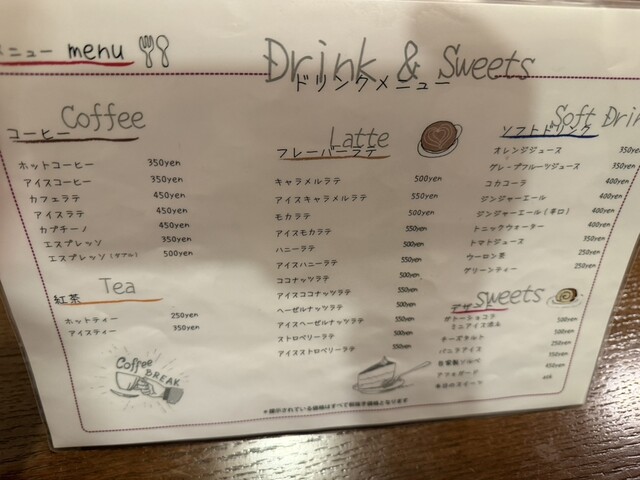 ニュー menu
Drink & Sweets
ドリンクメニュー
Coffee
コーヒー
ホットコーヒー 350yen
アイスコーヒー 350yen
カフェラテ 450yen
アイスラテ 450yen
カプチーノ 450yen
エスプレッソ 350yen
エスプレッソ(ダブル) 500yen
Tea
紅茶
ホットティー 250yen
アイスティー 350yen
Coffee
BREAK
Latte
フレーバーラテ
キャラメルラテ 500yen
アイスキャラメルラテ 550yen
モカラテ 500yen
アイスモカラテ 550yen
ハニーラテ 500yen
アイスハニーラテ 550yen
ココナッツラテ 500yen
アイスココナッツラテ 550yen
ヘーゼルナッツラテ 500yen
アイスヘーゼルナッツラテ 550yen
ストロベリーラテ 500yen
アイスストロベリーラテ 550yen
Soft Drin
ソフトドリンク
オレンジジュース 350ye
グレープフルーツジュース 350yen
コカコーラ 400yen
ジンジャーエール 400yen
ジンジャーエール(辛口) 400yen
トニックウォーター 400yen
トマトジュース 350yen
ウーロン茶 250yen
グリーンティー 250yen
sweets
デザ
ガトーショコラ 500yen
ミニアイス添え
チーズタルト 500yen
バニラアイス 250yen
自家製ソルベ 350yen
アフォガード
本日のスイーツ
*表示されている価格はすべて税抜き価格となります